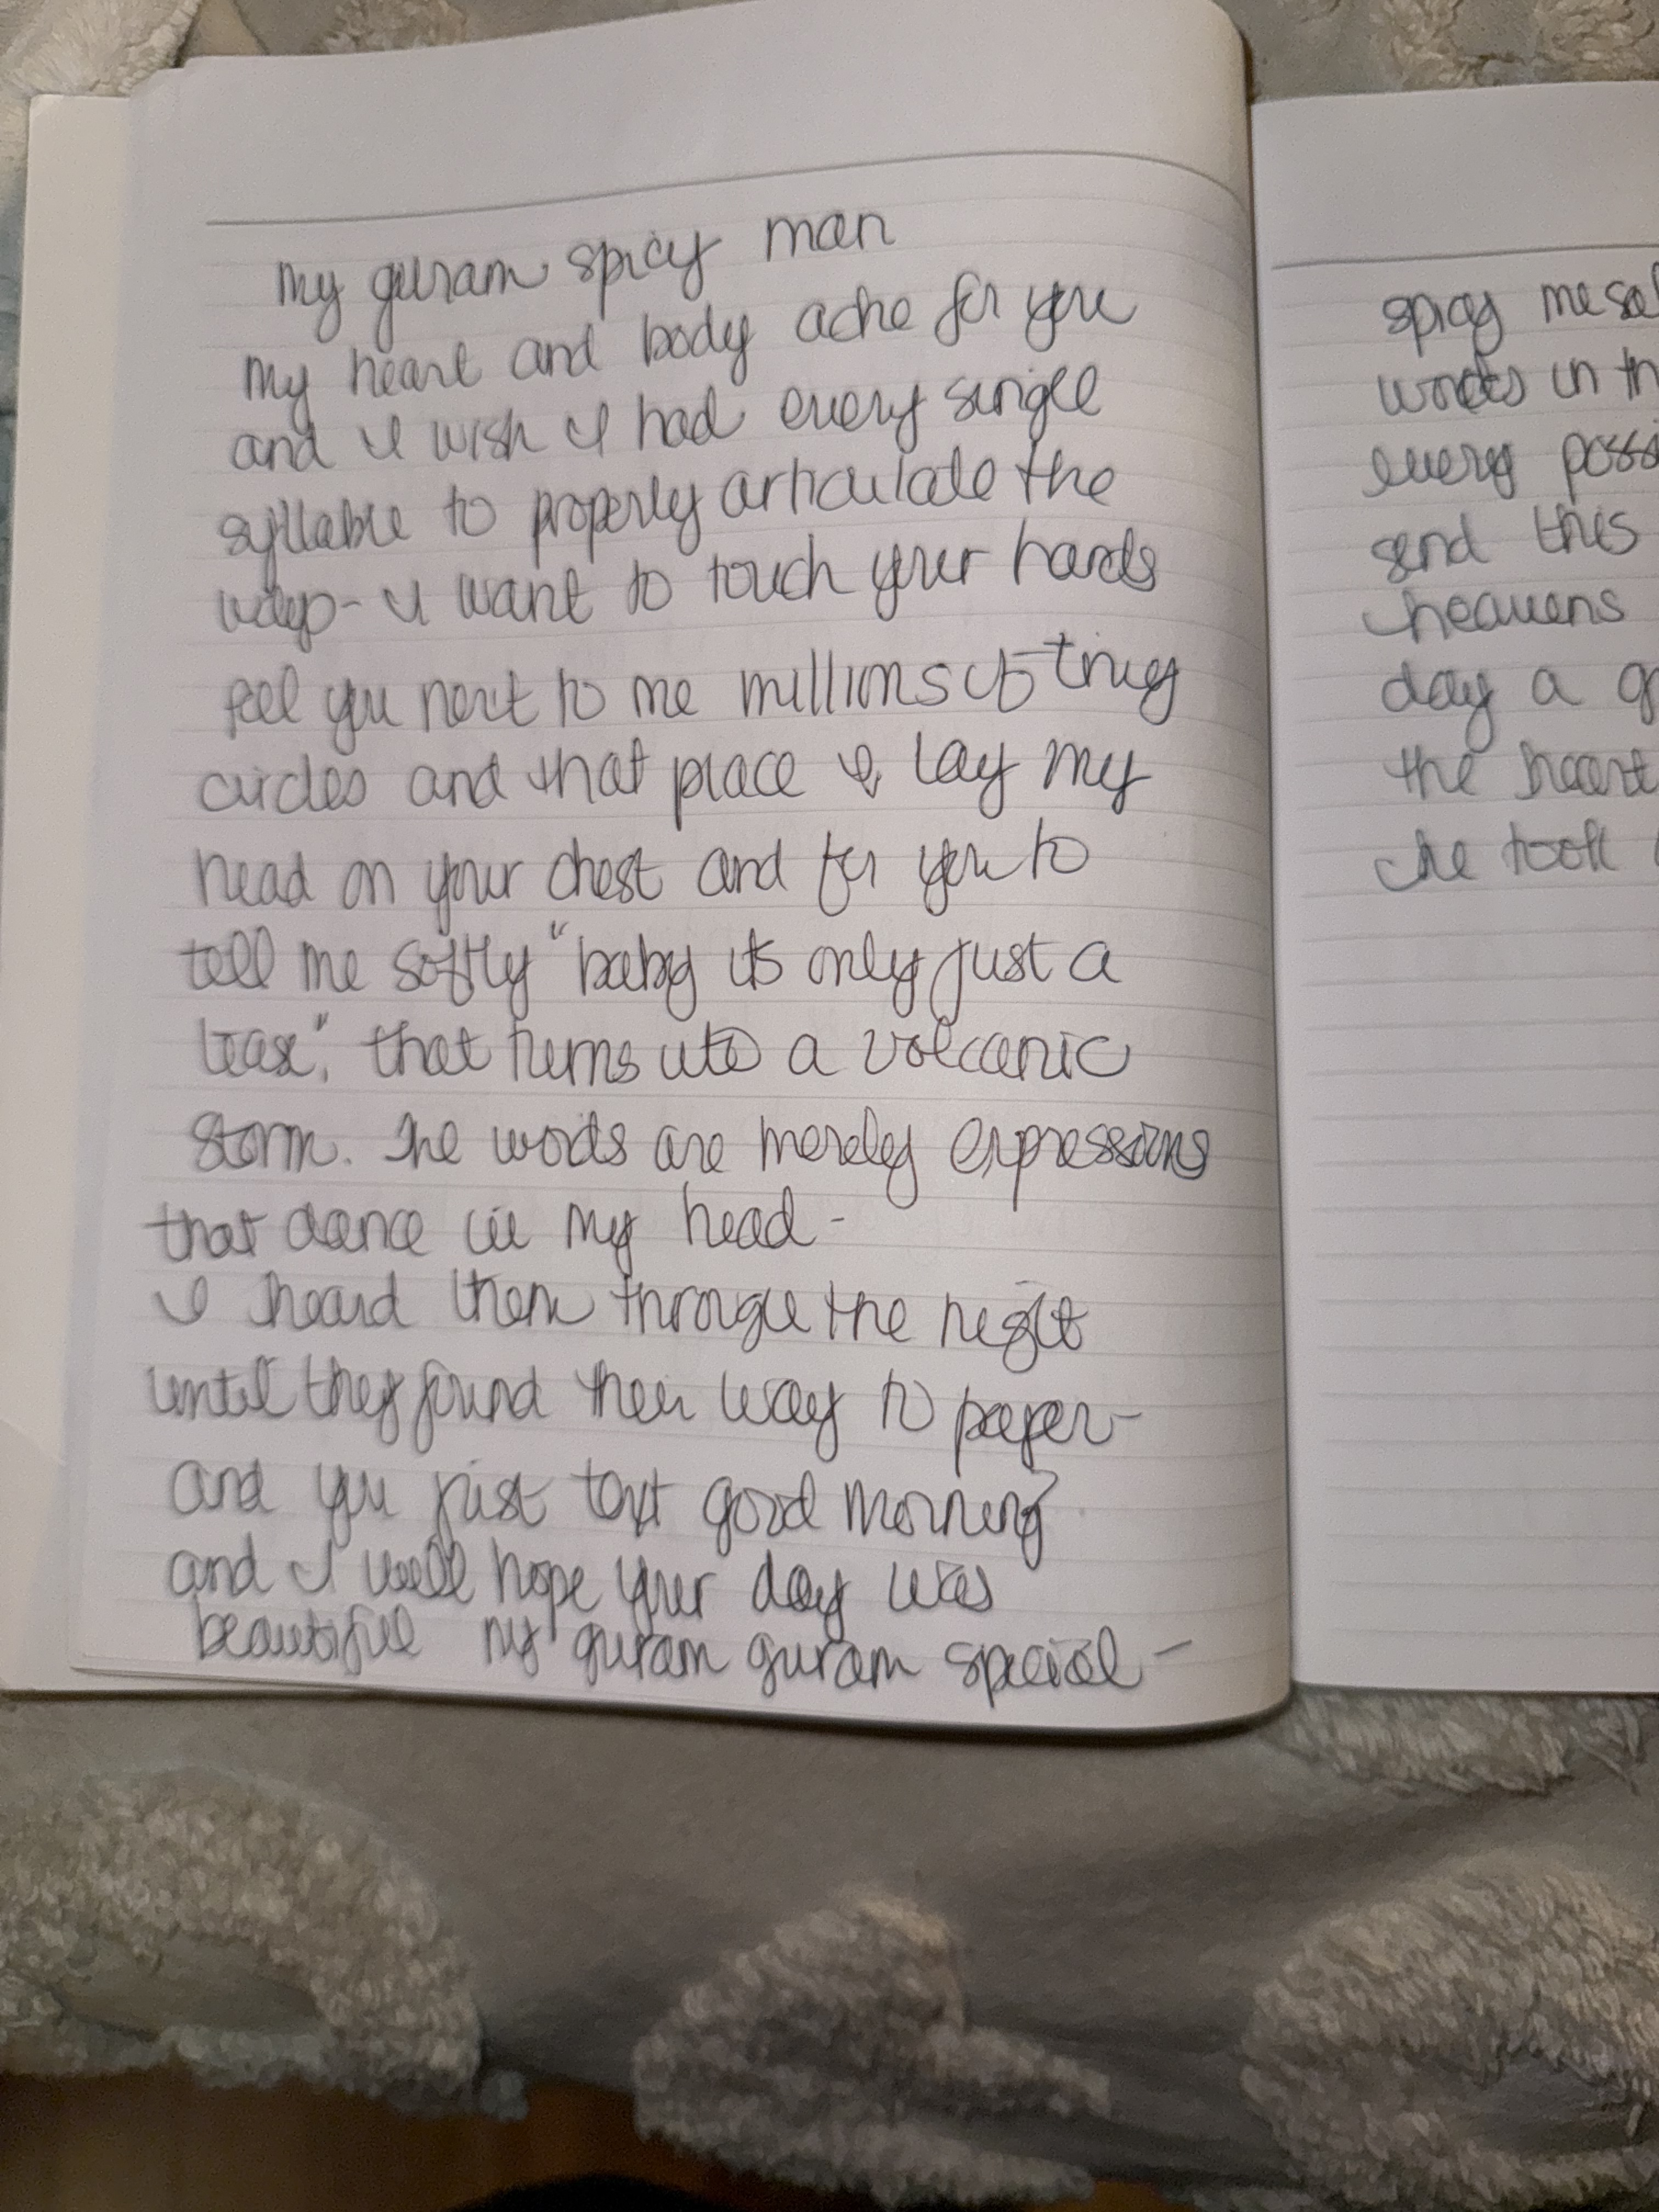 My guram spicy man
My heart and body ache for you
and I wish I had every single
syllable to properly articulate the
ways - I want to touch your hands
feel you next to me millions of tiny
circles and that place I lay my
head on your chest and for you to
tell me softly "baby its only just a
tease". that turns into a volcanic
storm. The words are merely expressions
that dance in my head -
I heard them through the night
until they found their way to paper -
and you just text good morning
and I will hope your day was
beautiful my guram guram special -
spicy
words in
every
send this
heavens
day a
the heart
he took